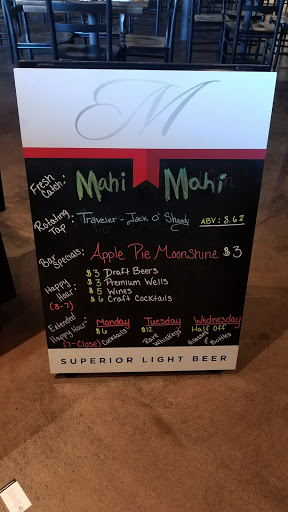 M
Fresh Catch: Mahi Mahi
Rotating Tap: Traveler - Jack O' Shandy ABV: 8.6%
Bar Specials: Apple Pie Moonshine $3
Happy Hour: (3-7)
$3 Draft Beers
$3 Premium Wells
$5 Wines
$6 Craft Cocktails
Extended Happy Hour: (7-Close)
Monday Tuesday Wednesday
$6 $12 Half Off
Cocktails Rare Whiskeys Glasses & Bottles
SUPERIOR LIGHT BEER